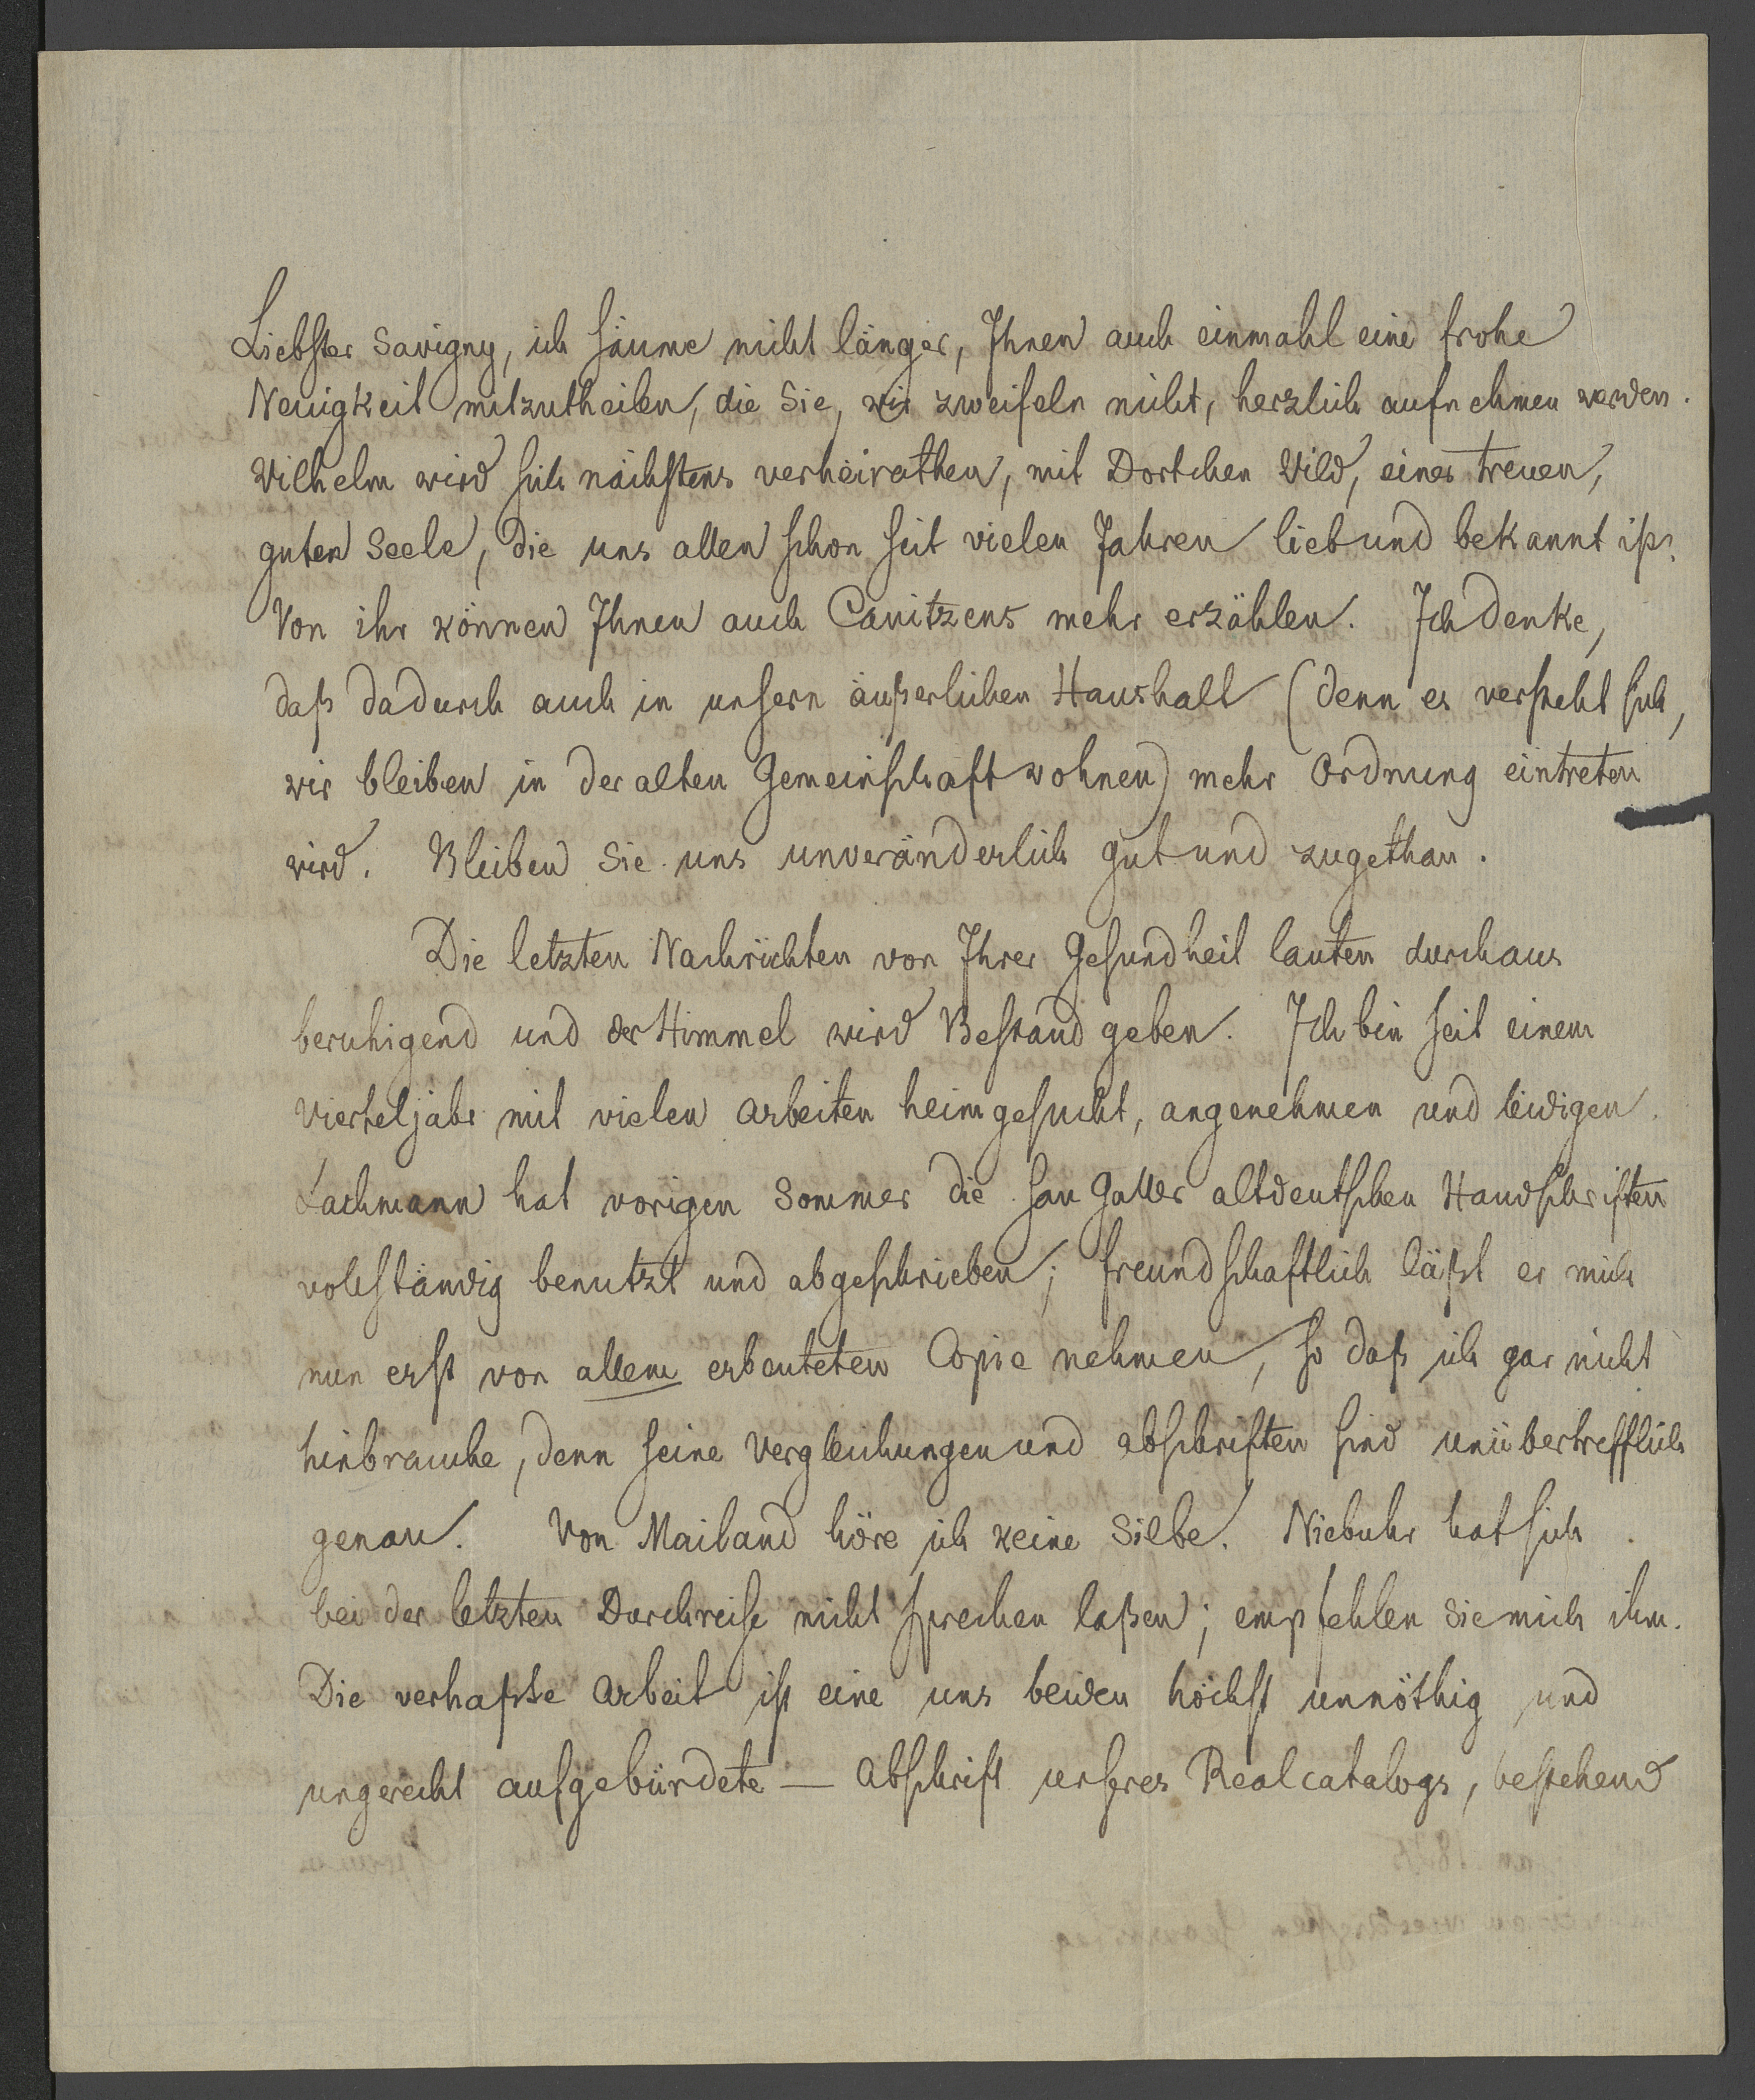 Liebster Savigny, ich säume nicht länger, Ihnen auch einmahl eine frohe
Neuigkeit mitzutheilen, die Sie, wir zweifeln nicht, herzlich aufnehmen werden.
Wilhelm wird sich nächstens verheirathen, mit Dortchen Wild, einer treuen,
guten Seele, die uns allen schon seit vielen Jahren lieb und bekannt ist.
Von ihr können Ihnen auch Canitzens mehr erzählen. Ich denke,
daß dadurch auch in unsern äußerlichen Haushalt (denn es versteht sich,
wir bleiben in der alten Gemeinschaft wohnen) mehr Ordnung eintreten
wird. Bleiben Sie uns unveränderlich gut und zugethan.
Die letzten Nachrichten von Ihrer Gesundheit lauten durchaus
beruhigend und der Himmel wird Bestand geben. Ich bin seit einem
Vierteljahr mit vielen Arbeiten heimgesucht, angenehmen und leidigen.
Lachmann hat vorigen Sommer die san Galler altdeutschen Handschriften
vollständig benutzt und abgeschrieben; freundschaftlich läßt er mich
nun erst von allem erbeuteten Copie nehmen, so daß ich gar nicht
hinbrauche, denn seine Vergleichungen und Abschriften sind unübertrefflich
genau. Von Mailand höre ich keine Silbe. Niebuhr hat sich
bei der letzten Durchreise nicht sprechen laßen; empfehlen Sie mich ihm.
Die verhaßte Arbeit ist eine uns beiden höchst unnöthig und
ungerecht aufgebürdete — Abschrift unseres Realcatalogs, bestehend